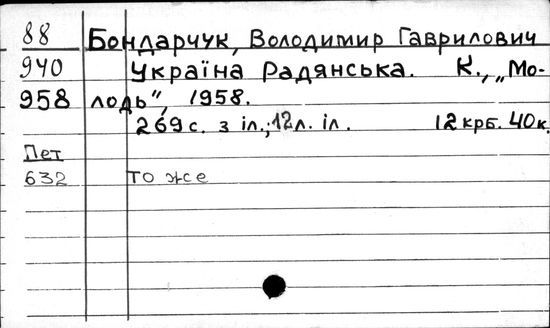 88 Бондарчук, Володимир Гаврилович
940 Україна Радянська. К., „Мо-
958 лодь", 1958.
269 с. з іл.; 12 л. іл. 12 крб. 40 к.
Пет
632 то же